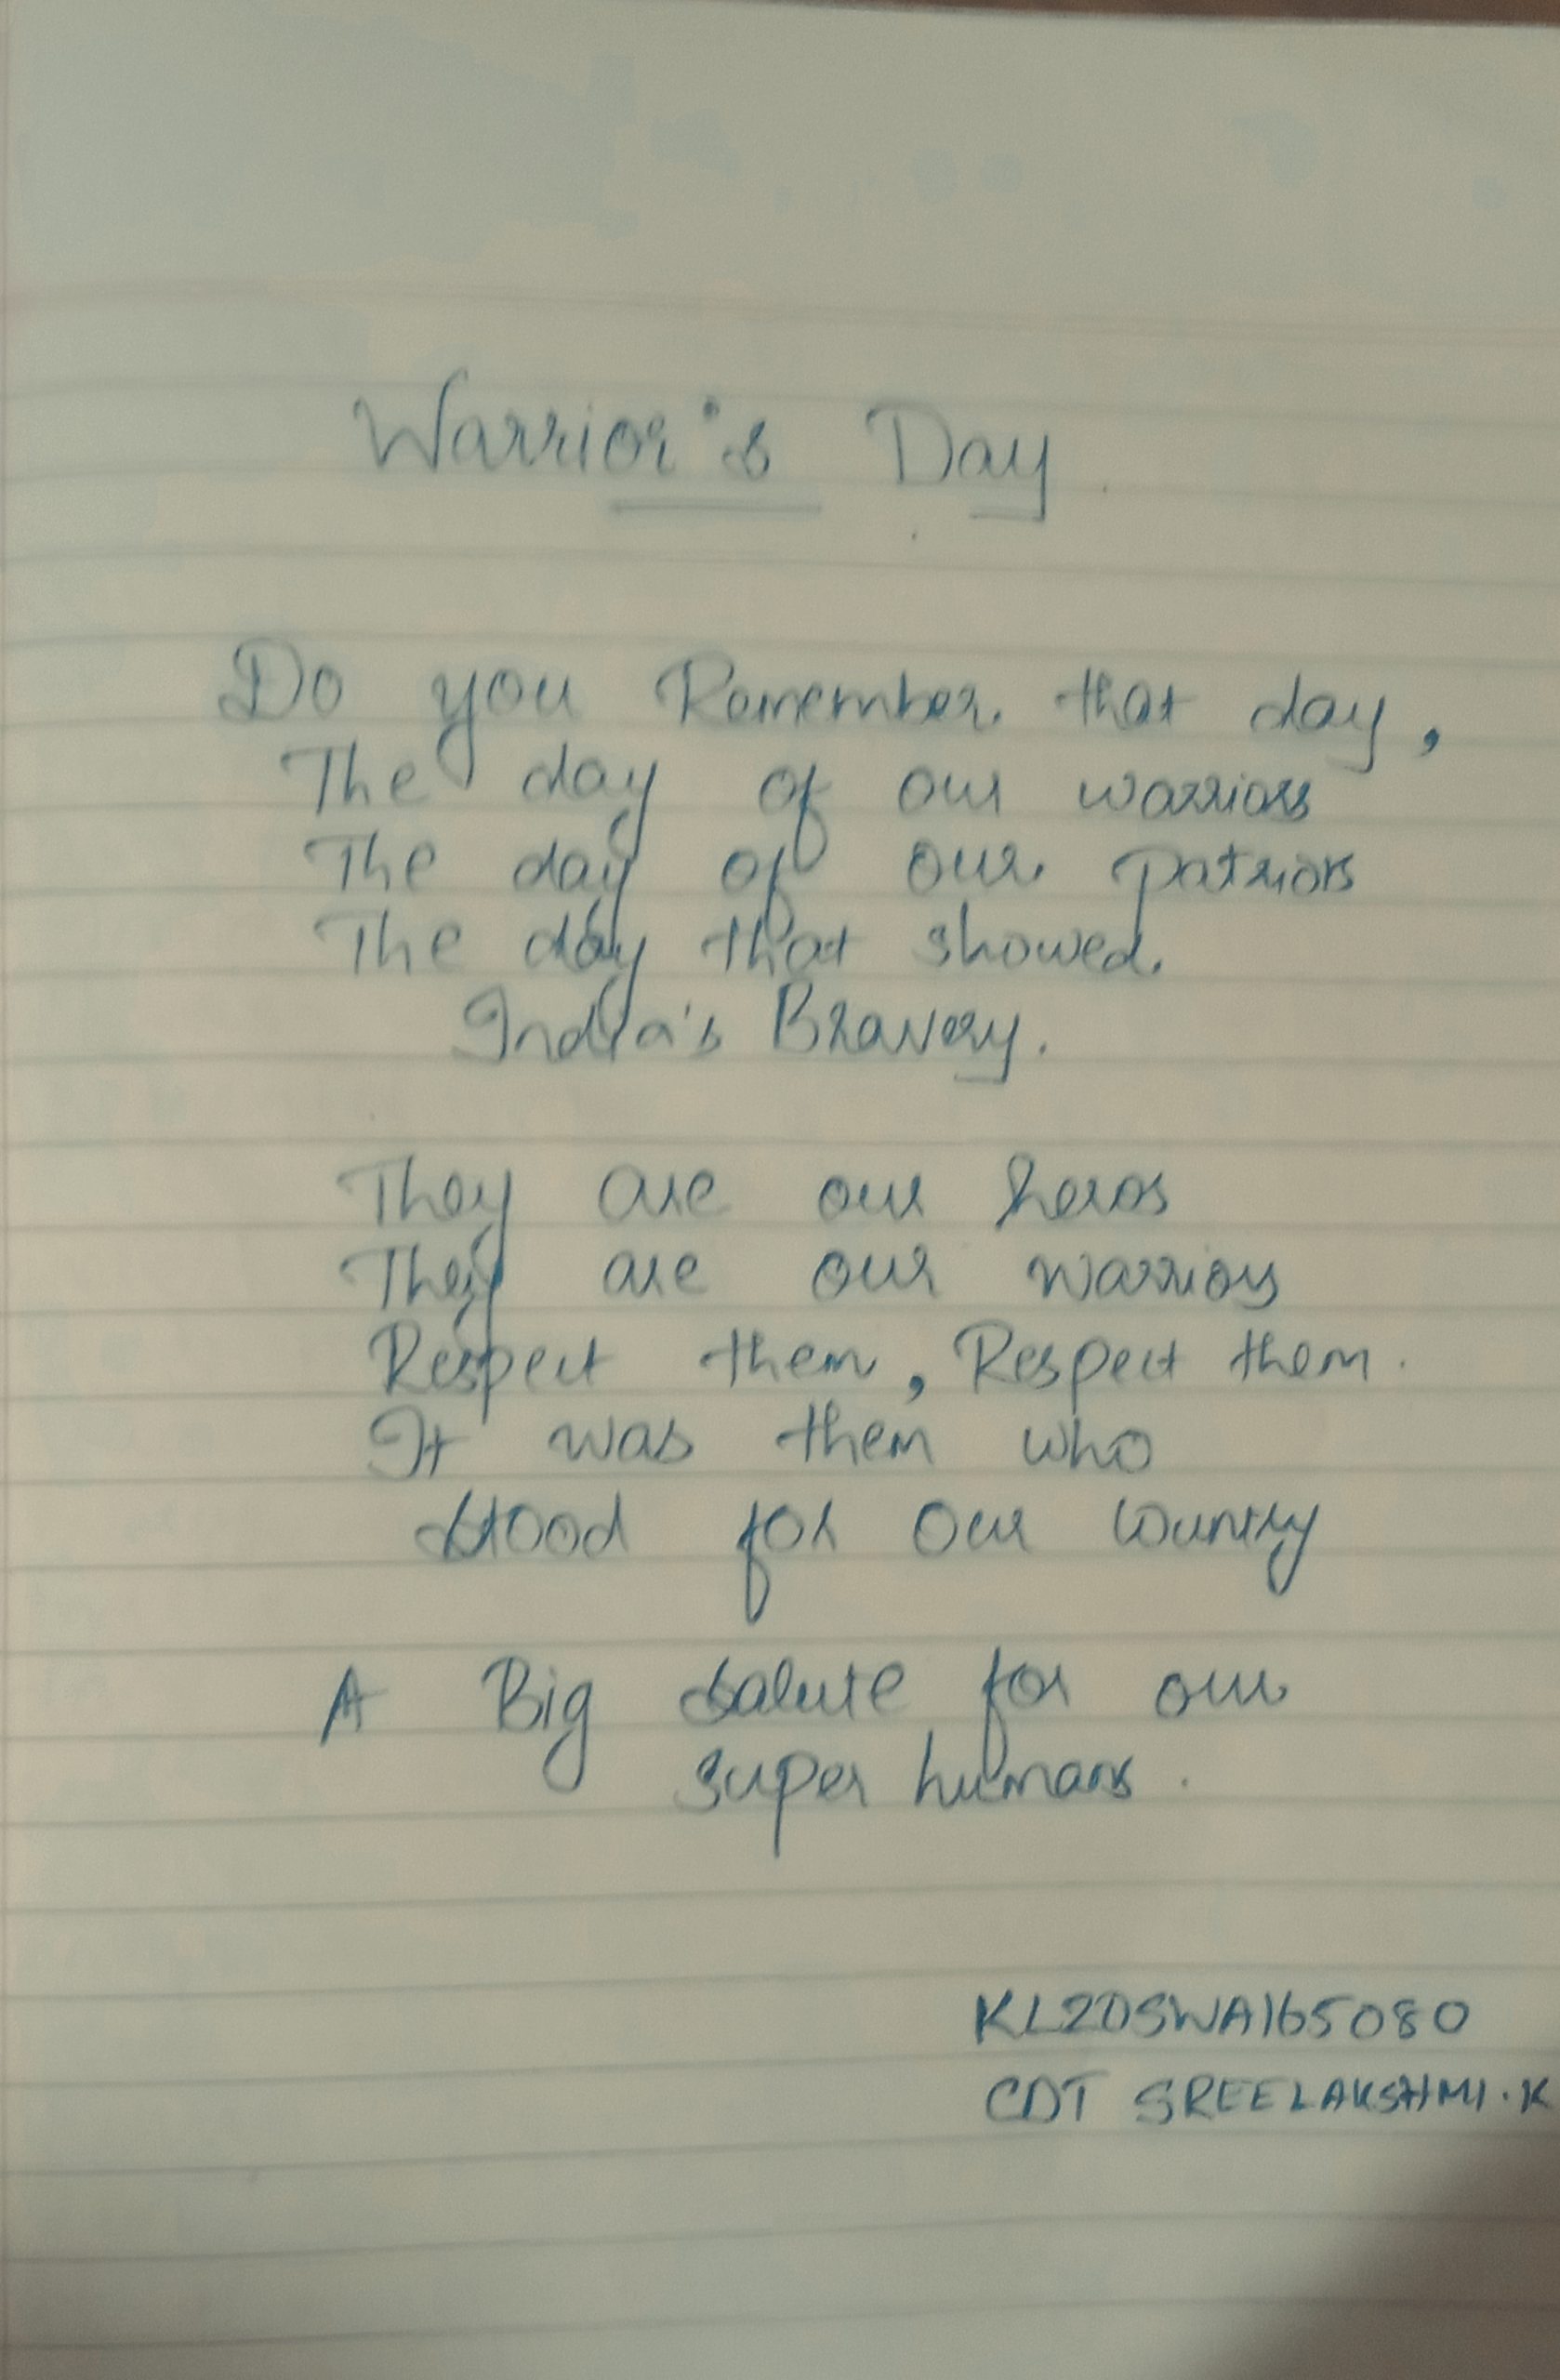 Warrior's Day
Do you Remember that day,
The day of our warriors
The day of our patriots
The day that showed
India's Bravery.
They are our heros
They are our warriors
Respect them, Respect them.
It was them who
stood for our country
A Big salute for our
super humans.
KL20SWA165080
CDT SREELAKSHMI.K